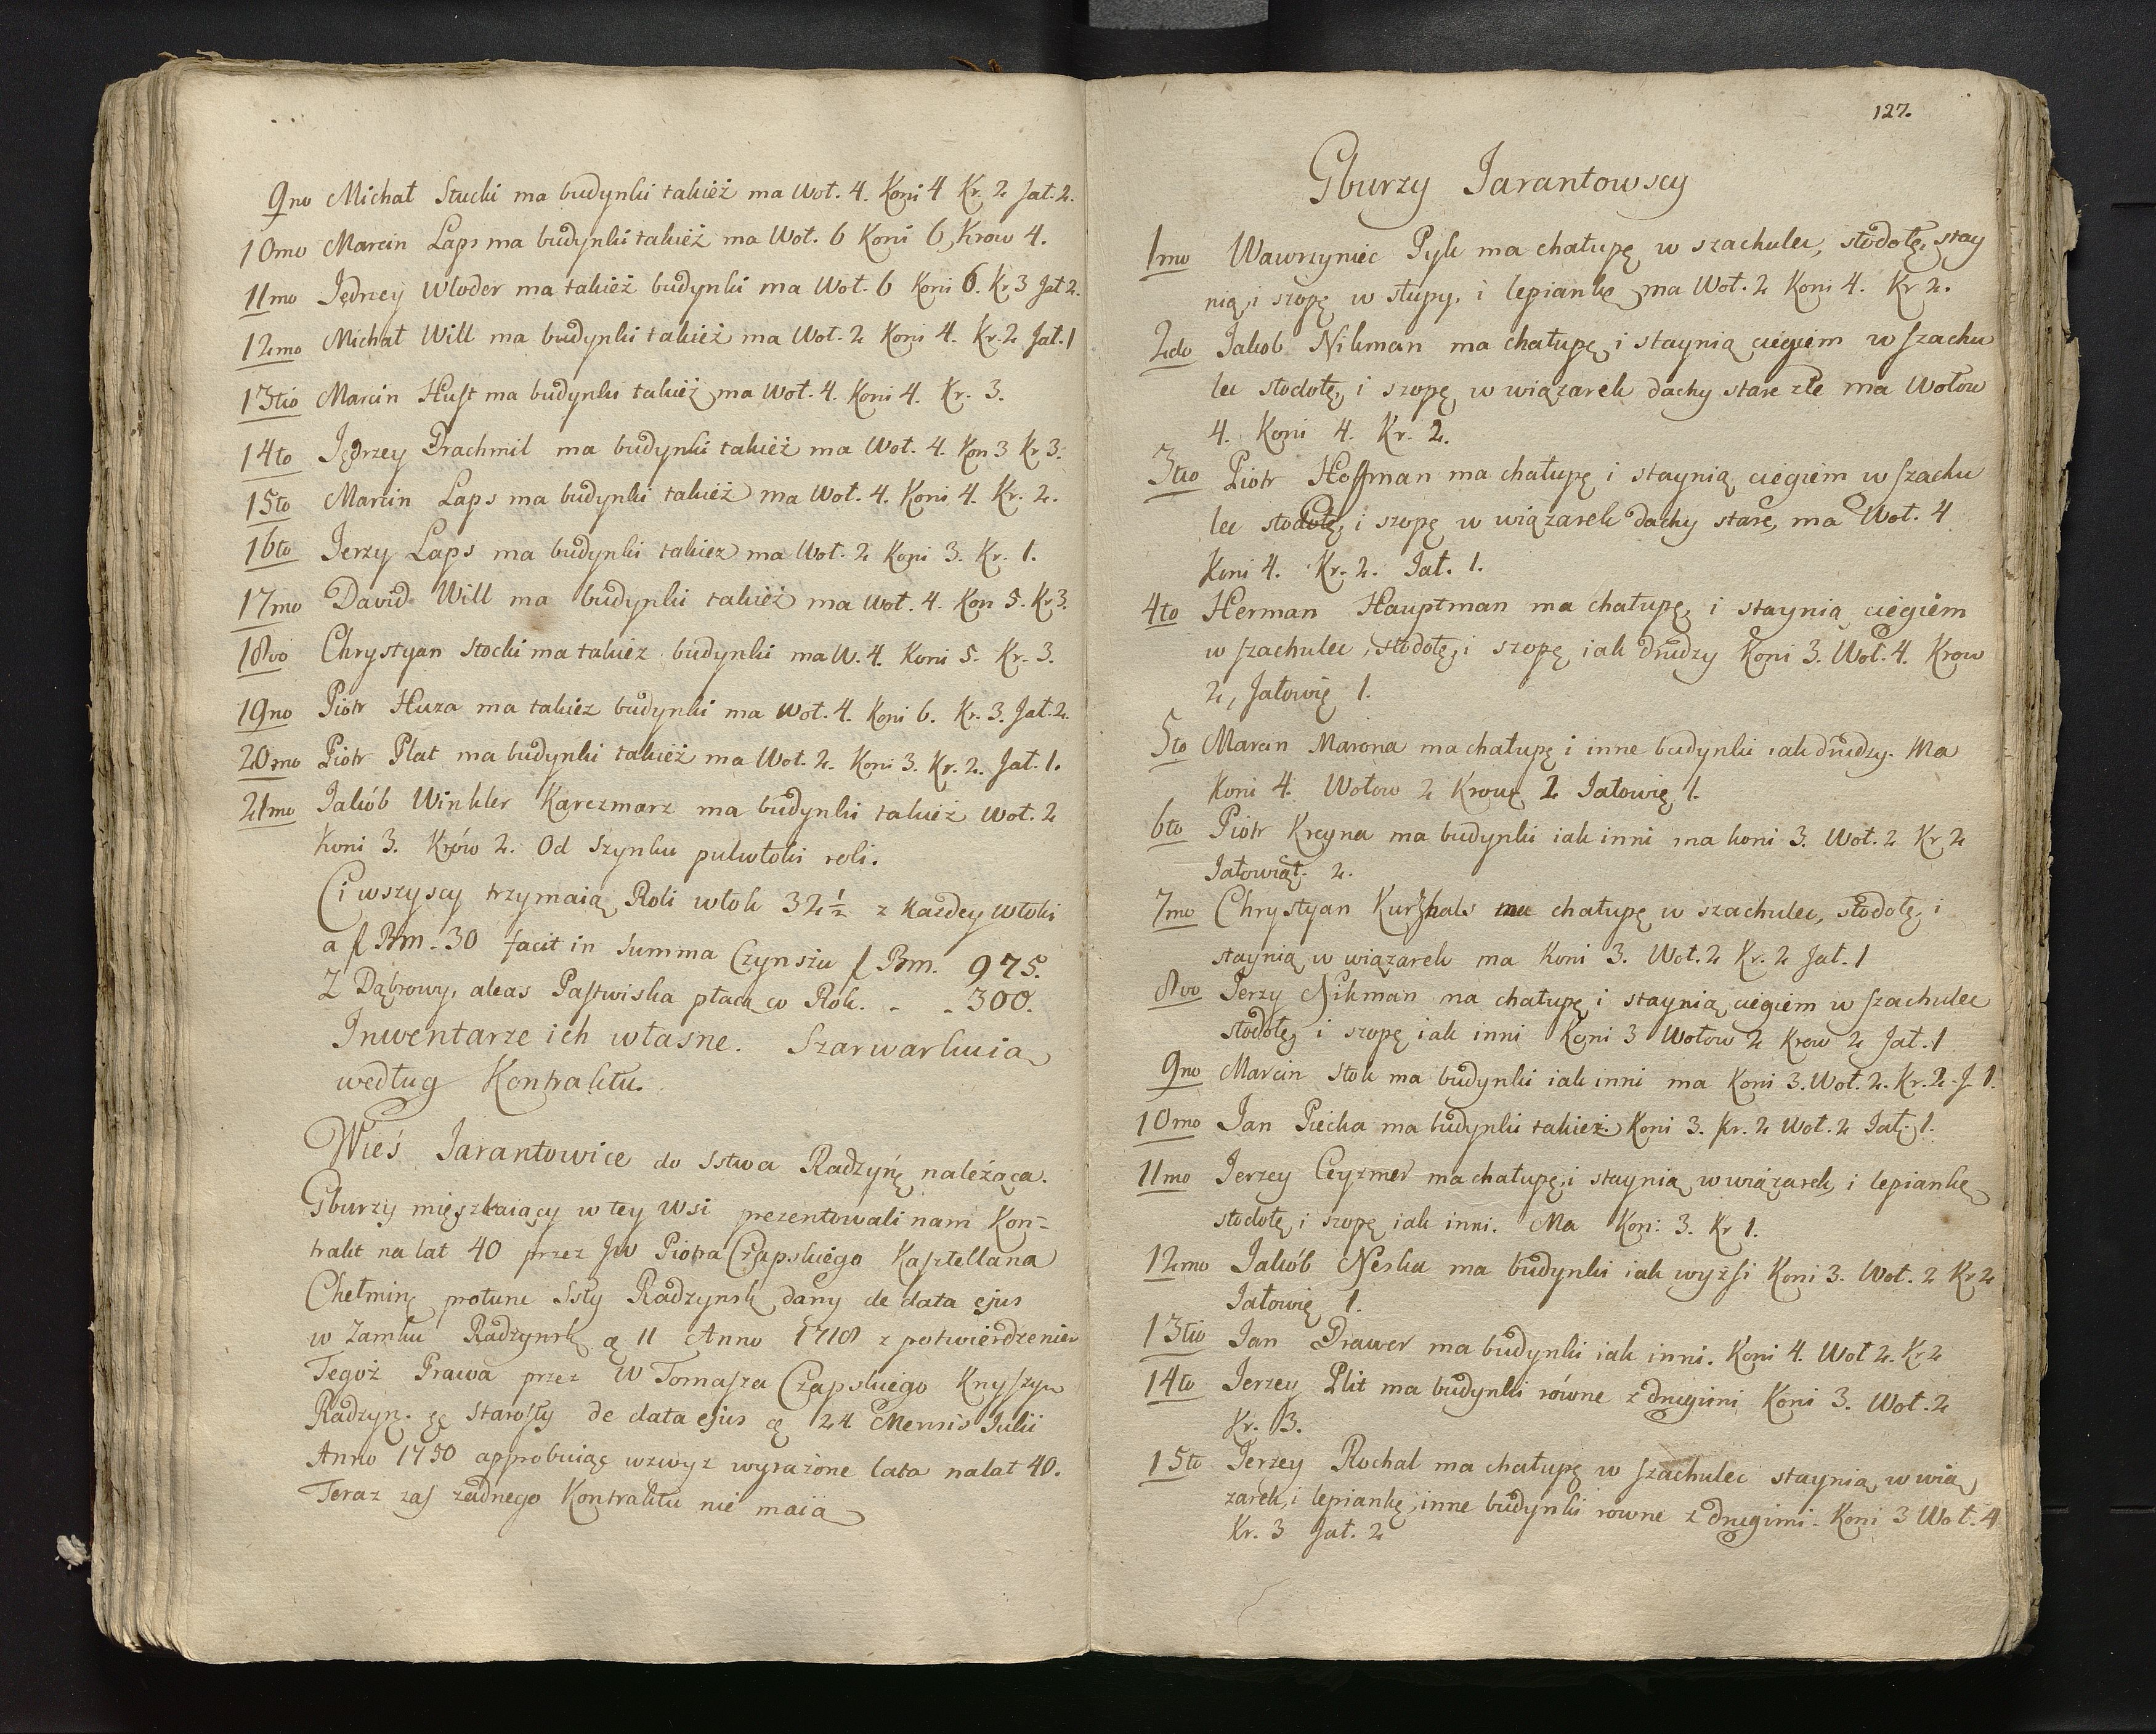 9no Michał Stucki ma budynki takież ma Woł. 4. Koni 4 Kr. 2 Jał. 2.
10mo Marcin Laps ma budynki takież ma Woł. 6 Koni 6, Krow 4.
11mo Jędrzey Wloder ma takież budynki ma Woł. 6 Koni 6. Kr 3 Jał 2.
12mo Michał Will ma budynki takież ma Woł. 2 Koni 4. Kr. 2 Jał. 1
13tio Marcin Hust ma budynki takież ma Woł. 4. Koni 4. Kr. 3.
14to Jędrzey Drachmil ma budynki takież ma Woł. 4. Kon 3 Kr 3.
15to Marcin Laps ma budynki takież ma Woł. 4. Koni 4. Kr. 2.
16to Jerzy Laps ma budynki takiez ma Woł. 2 Koni 3. Kr. 1.
17mo David Will ma budynki takież ma Woł. 4. Kon 5. Kr 3.
18vo Chrystyan Stocki ma takiez budynki ma W. 4. Koni 5. Kr. 3.
19no Piotr Huza ma takiez budynki ma Woł. 4. Koni 6. Kr. 3. Jał. 2.
20mo Piotr Plat ma budynki takież ma Woł. 2. Koni 3. Kr. 2. Jał. 1.
21mo Jakób Winkler Karczmarz ma budynki takież Woł. 2
Koni 3. Krów 2. Od Szynku pułwłoki roli.
Ci wszyscy trzymaią Roli włok 32½ z Kazdey Włoki
a f Bm. 30 facit in Summa Czynszu f Bm. 975.
Z Dąbrowy, aleas Pastwiska płacą co Rok. - - 300.
Inwentarze ich własne. Szarwarkuią
według Kontraktu.
Wieś Jarantowice do Sstwa Radzyń należąca.
Gburzy mięszkaiący w tey Wsi prezentowali nam Kon-
trakt na lat 40 przez JW Piotra Czapskiego Kasztellana
Chełmin protunc Ssty Radzynsk dany de data ejus
w Zamku Radzynsk 11 Anno 1718 z potwierdzeniem
Tegoż Prawa przez W Tomasza Czapskiego Knyszyn
Radzyn. Starosty de data ejus 24 Mensis Julii
Anno 1750 approbuiąc wzwyz wyrażone lata na lat 40.
Teraz zaś zadnego Kontraktu nie maia
127.
Gburzy Jarantowscy
1mo Wawrzyniec Pyk ma chałupę w szachulec, stodołę, stay
nią, i szopę w słupy, i lepiankę ma Woł. 2 Koni 4. Kr 2.
2do Jakob Nikman ma chałupę i staynią ciégiem w szachu
lec stodołę, i szopę w wiązarek dachy stare złe ma Wołow
4. Koni 4. Kr. 2.
3tio Piotr Hoffman ma chałupę i staynią ciégiem w szachu
lec stodołę, i szopę w wiązarek dachy stare, ma Woł. 4
Koni 4. Kr. 2. Jał. 1.
4to Herman Hauptman ma chałupę, i staynią ciégiem
w szachulec, stodołę, i szopę iak drudzy Koni 3. Woł. 4. Krow
2, Jałowię 1.
5to Marcin Marona ma chałupę i inne budynki iak drudzy. Ma
Koni 4. Wołow 2 Krowę 1 Jałowię 1.
6to Piotr Kregna ma budynki iak inni ma koni 3. Woł. 2 Kr 2
Jałowiąt. 2.
7mo Chrystyan Kurzhals ma chałupę w szachulec, stodołę, i
staynią w wiązarek ma Koni 3. Woł. 2 Kr. 2 Jał. 1
8vo Jerzy Nikman ma chałupę i staynią ciégiem w szachulec
stodołę, i szopę iak inni Koni 3 Wołow 2 Krow 2 Jał. 1
9no Marcin Stok ma budynki iak inni ma Koni 3. Woł. 2. Kr. 2. J 1.
10mo Jan Piecka ma budynki takież. Koni 3. Kr. 2 Woł. 2 Jał. 1.
11mo Jerzey Ceyzmer ma chałupę, i staynią w wiązarek, i lepiankę
stodołę i szopę iak inni. Ma Koni 3. Kr 1.
12mo Jakób Neska ma budynki iak wyżsi Koni 3. Woł. 2 Kr 2
Jałowię 1.
13tio Jan Drawer ma budynki iak inni. Koni 4. Woł 2. Kr 2
14to Jerzey Plit ma budynki równe z drugimi Koni 3. Woł. 2
Kr. 3.
15to Jerzey Rochal ma chałupę w szachulec staynią w wią
zarek, i lepiankę, inne budynki rowne z drugimi. Koni 3 Woł. 4
Kr. 3 Jał. 2